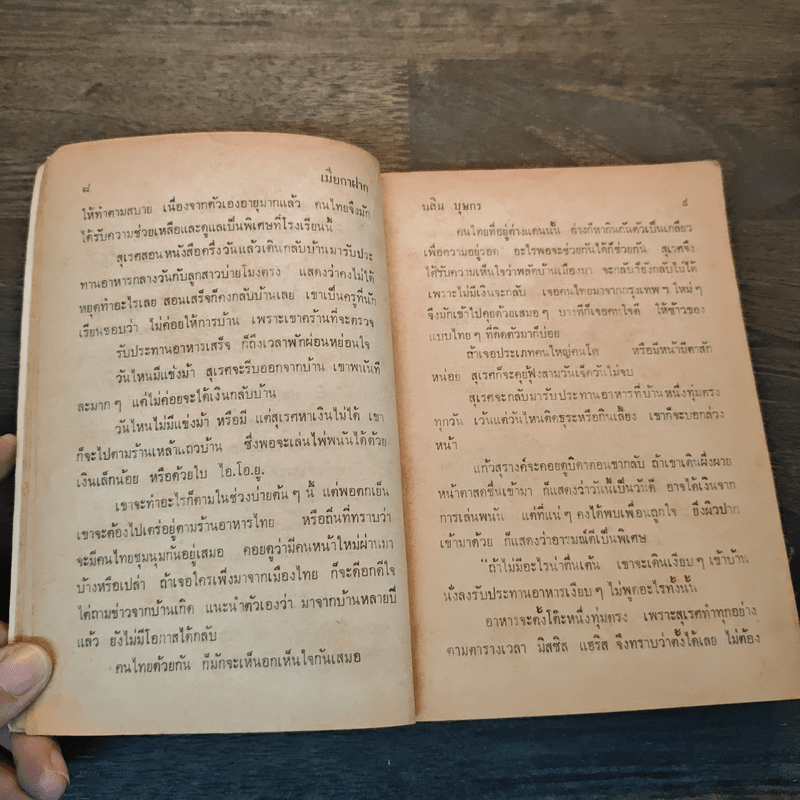 ๘ เมียกาฝาก
ให้ทำตามสบาย เนื่องจากตัวเองอายุมากแล้ว คนไทยจึงมัก
ได้รับความช่วยเหลือและดูแลเป็นพิเศษที่โรงเรียนนี้
สุเรศสอนหนังสือครึ่งวันแล้วเดินกลับบ้านมารับประ
ทานอาหารกลางวันกับลูกสาวบ่ายโมงตรง แสดงว่าคงไม่ได้
หยุดทำอะไรเลย สอนเสร็จก็คงกลับบ้านเลย เขาเป็นครูที่นัก
เรียนชอบว่า ไม่ค่อยให้การบ้าน เพราะเขาคร้านที่จะตรวจ
รับประทานอาหารเสร็จ ก็ถึงเวลาพักผ่อนหย่อนใจ
วันไหนมีแข่งม้า สุเรศจะรีบออกจากบ้าน เขาพนันที
ละมาก ๆ แต่ไม่ค่อยจะได้เงินกลับบ้าน
วันไหนไม่มีแข่งม้า หรือมี แต่สุเรศหาเงินไม่ได้ เขา
ก็จะไปตามร้านเหล้าแถวบ้าน ซึ่งพอจะเล่นไพ่พนันได้ด้วย
เงินเล็กน้อย หรือด้วยใบ ไอ.โอ.ยู.
เขาจะทำอะไรก็ตามในช่วงบ่ายต้น ๆ นี้ แต่พอตกเย็น
เขาจะต้องไปเตร่อยู่ตามร้านอาหารไทย หรือถิ่นที่ทราบว่า
จะมีคนไทยชุมนุมกันอยู่เสมอ คอยดูว่ามีคนหน้าใหม่ผ่านมา
บ้างหรือเปล่า ถ้าเจอใครเพิ่งมาจากเมืองไทย ก็จะดีอกดีใจ
ไต่ถามข่าวจากบ้านเกิด แนะนำตัวเองว่า มาจากบ้านหลายปี
แล้ว ยังไม่มีโอกาสได้กลับ
คนไทยด้วยกัน ก็มักจะเห็นอกเห็นใจกันเสมอ
นลิน บุษกร ๙
คนไทยที่อยู่ต่างแดนนั้น ต่างก็หากินกันตัวเป็นเกลียว
เพื่อความอยู่รอด อะไรพอจะช่วยกันได้ก็ช่วยกัน สุเรศจึง
ได้รับความเห็นใจว่าพลัดบ้านเมืองมา จะกลับก็ยังกลับไม่ได้
เพราะไม่มีเงินจะกลับ เจอคนไทยมาจากกรุงเทพฯ ใหม่ ๆ
จึงมักเข้าไปคุยด้วยเสมอ ๆ บางทีก็เจอคนใจดี ให้ข้าวของ
แบบไทย ๆ ที่ติดตัวมาก็บ่อย
ถ้าเจอประเภทคนใหญ่คนโต หรือมีหน้ามีตาสัก
หน่อย สุเรศก็จะคุยฟุ้งสามวันเจ็ดวันไม่จบ
สุเรศจะกลับมารับประทานอาหารที่บ้านหนึ่งทุ่มตรง
ทุกวัน เว้นแต่วันไหนติดธุระหรือกินเลี้ยง เขาก็จะบอกล่วง
หน้า
แก้วสุรางค์จะคอยดูบิดาตอนขากลับ ถ้าเขาเดินผึ่งผาย
หน้าตาสดชื่นเข้ามา ก็แสดงว่าวันนี้เป็นวันดี อาจได้เงินจาก
การเล่นพนัน แต่ที่แน่ ๆ คงได้พบเพื่อนถูกใจ ยิ่งผิวปาก
เข้ามาด้วย ก็แสดงว่าอารมณ์ดีเป็นพิเศษ
“ถ้าไม่มีอะไรน่าตื่นเต้น เขาจะเดินเงียบ ๆ เข้าบ้าน
นั่งลงรับประทานอาหารเงียบ ๆ ไม่พูดอะไรทั้งนั้น
อาหารจะตั้งโต๊ะหนึ่งทุ่มตรง เพราะสุเรศทำทุกอย่าง
ตามตารางเวลา มิสซิส แฮริส จึงทราบว่าตั้งได้เลย ไม่ต้อง